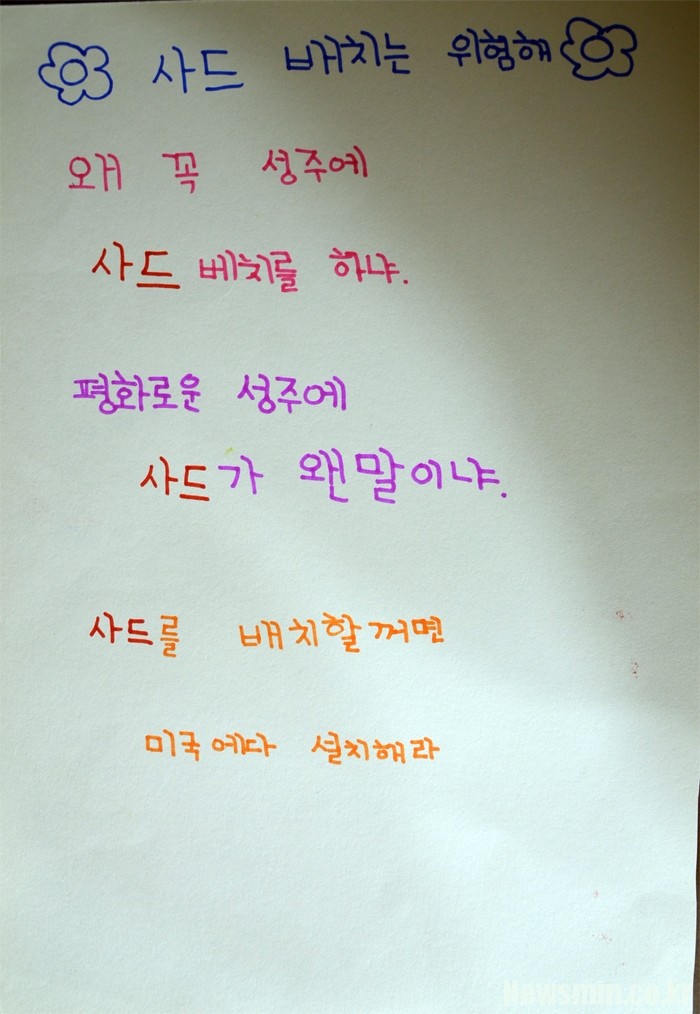 사드 배치는 위험해
왜 꼭 성주에
사드 베치를 하냐.
평화로운 성주에
사드가 왠말이냐.
사드를 배치할꺼면
미국에다 설치해라
Newsmin.co.kr